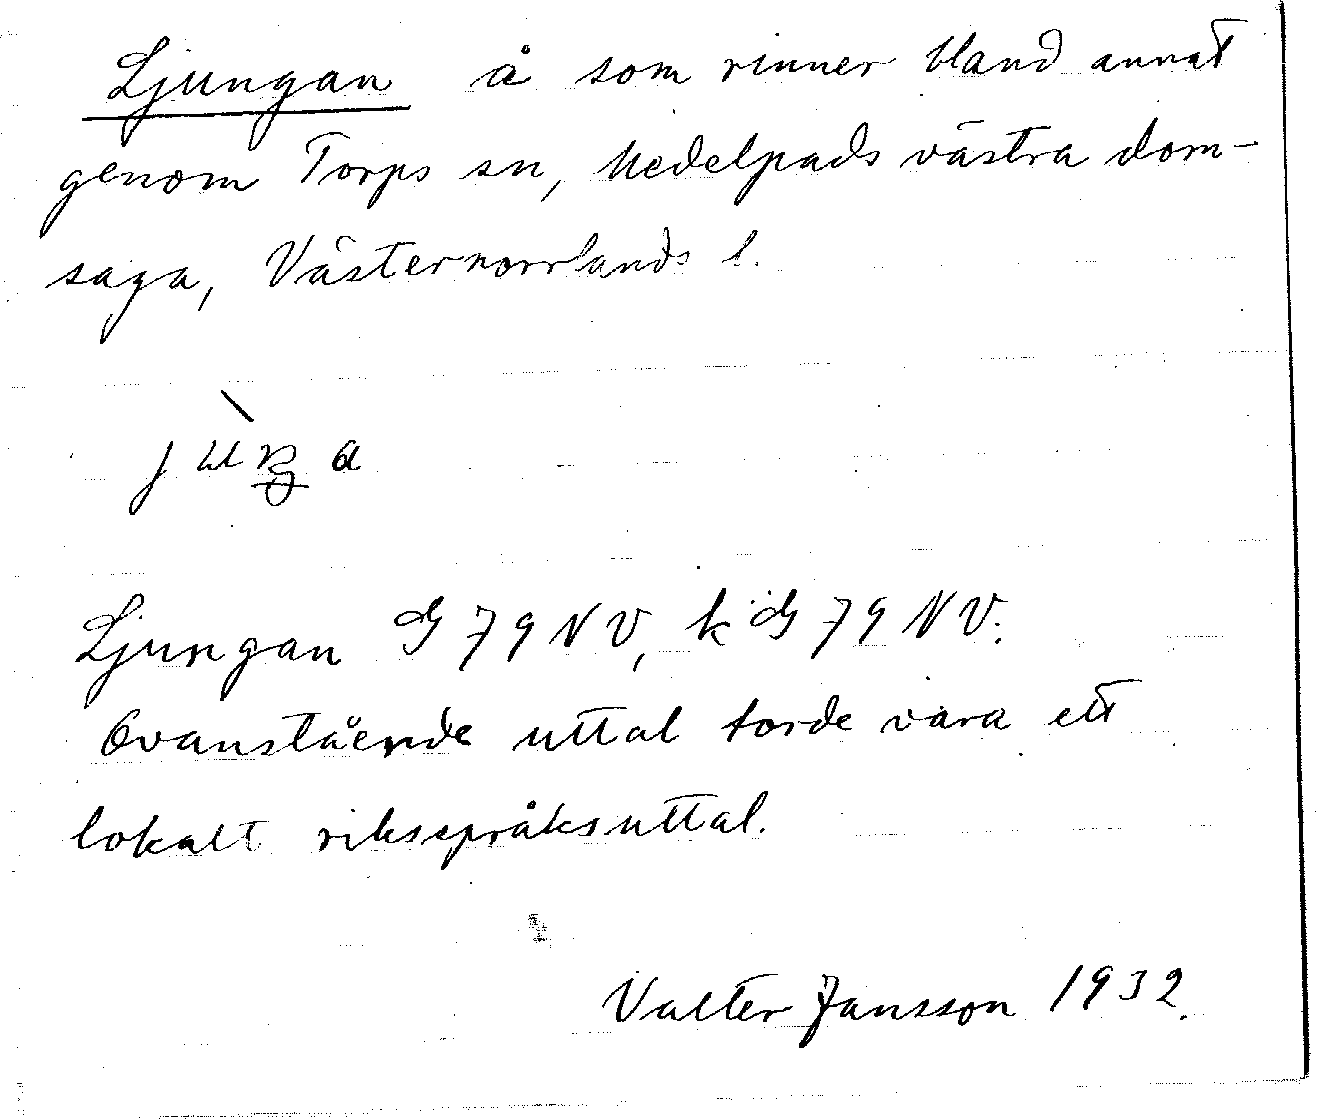 Ljungan å som rinner bland annat
genom Torps sn, Medelpads västra dom-
saga, Västernorrlands l.
Ljungan G 79 NV, k G 79 NV.
Ovanstående uttal torde vara ett
lokalt riksspråksuttal.
Valter Jansson 1932.